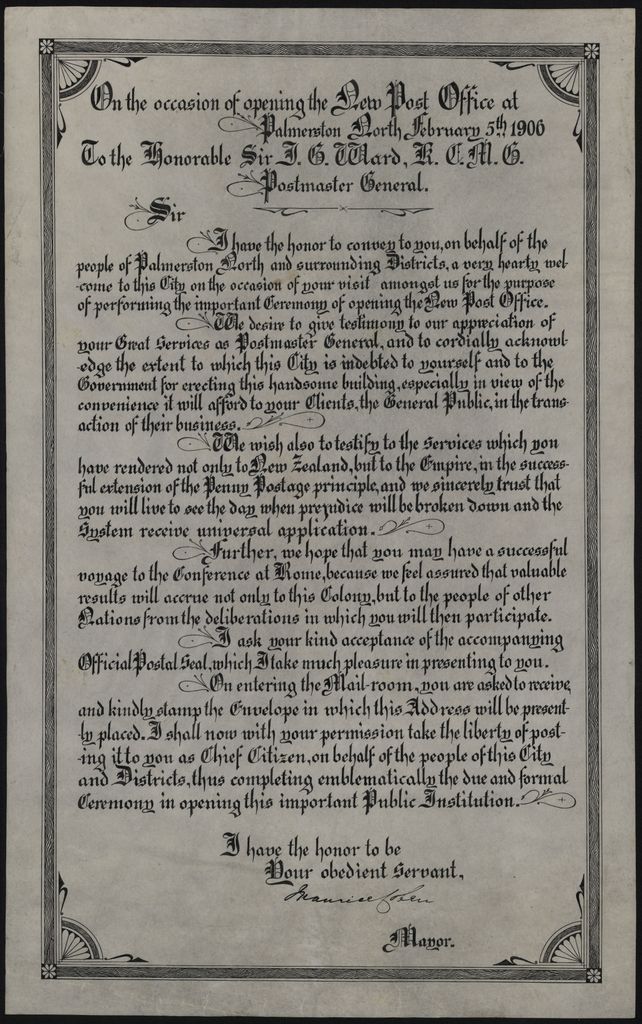 On the occasion of opening the New Post Office at
Palmerston North, February 5th 1906
To the Honorable Sir J. G. Ward, K. C. M. G.
Postmaster General.
Sir
I have the honor to convey to you, on behalf of the
people of Palmerston North and surrounding Districts, a very hearty wel-
come to this City on the occasion of your visit amongst us for the purpose
of performing the important Ceremony of opening the New Post Office.
We desire to give testimony to our appreciation of
your Great Services as Postmaster General, and to cordially acknowl-
edge the extent to which this City is indebted to yourself and to the
Government for erecting this handsome building, especially in view of the
convenience it will afford to your Clients, the General Public, in the trans-
action of their business.
We wish also to testify to the services which you
have rendered not only to New Zealand, but to the Empire, in the success-
ful extension of the Penny Postage principle, and we sincerely trust that
you will live to see the day when prejudice will be broken down and the
System receive universal application.
Further, we hope that you may have a successful
voyage to the Conference at Rome, because we feel assured that valuable
results will accrue not only to this Colony, but to the people of other
Nations from the deliberations in which you will then participate.
I ask your kind acceptance of the accompanying
Official Postal Seal, which I take much pleasure in presenting to you.
On entering the Mail-room, you are asked to receive,
and kindly stamp the Envelope in which this Address will be present-
ly placed. I shall now with your permission take the liberty of post-
ing it to you as Chief Citizen, on behalf of the people of this City
and Districts, thus completing emblematically the due and formal
Ceremony in opening this important Public Institution.
I have the honor to be
Your obedient Servant,
Maurice Cohen
Mayor.